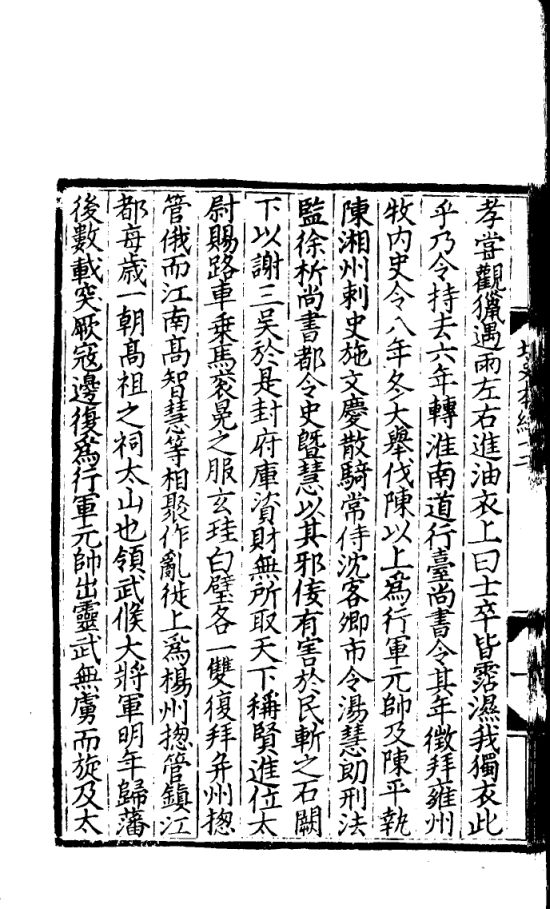 孝嘗觀獵遇雨左右進油衣上曰士卒皆霑濕我獨衣此
乎乃令持去六年轉淮南道行臺尚書令其年徵拜雍州
牧内史令八年冬大舉伐陳以上爲行軍元帥及陳平執
陳湘州刺史施文慶散騎常侍沈客卿市令湯慧朗刑法
監徐析尚書都令史曁慧以其邪佞有害於民斬之石闕
下以謝三吳於是封府庫資財無所取天下稱賢進位太
尉賜路車乗馬衮冕之服玄珪白璧各一雙復拜并州揔
管俄而江南髙智慧等相聚作亂徙上爲楊州揔管鎮江
都每歳一朝髙祖之祠太山也領武候大將軍明年歸藩
後數載突厥寇邊復爲行軍元帥出靈武無虜而旋及太